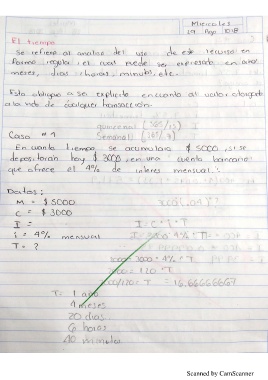 Miercoles
29 Ago 2018
El tiempo
Se refiere al analisis del uso de este recurso en
forma regular el cual puede ser expresado en años
meses, dias, horas, minutos, etc.
Esto obligue a ser explicito en cuanto al valor otorgado
a la vida de cualquier transacción.
Caso #1
En cuanto tiempo se acumulara $5000, si se
depositaran hoy $3000 en una cuenta bancaria
que ofrece el 4% de interes mensual.
Datos:
M = $5000
C = $3000
I =
i = 4% mensual
T = ?
I = C * i * T
= 120 * T
= 16.66666667
T: 1 año
4 meses
20 dias
6 horas
40 minutos
Scanned by CamScanner